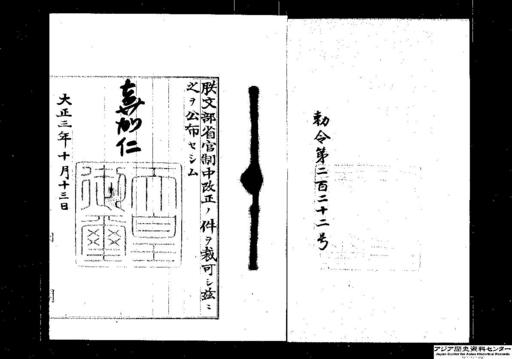 勅令第二百二十二号
朕文部省官制中改正ノ件ヲ裁可シ茲ニ
之ヲ公布セシム
嘉仁
天皇御璽
大正三年十月十三日
アジア歴史資料センター
Japan Center for Asian Historical Records